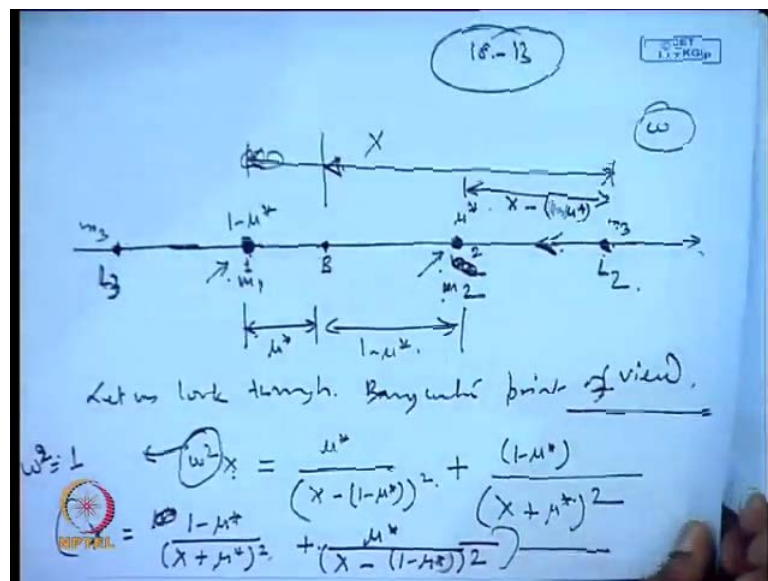 18.-13
© CET
I.I.T. KGP
ω
X
X - (1-μ*)
m3 1-μ* μ* m3
L3 1 B 2 L2
m1 m2
μ* 1-μ*
Let us look through. Barycentric point of view.
ω² = 1 ← ω² x = μ* / (X - (1-μ*))² + (1-μ*) / (X + μ*)²
= 1-μ* / (X + μ*)² + μ* / (X - (1-μ*))²
NPTEL